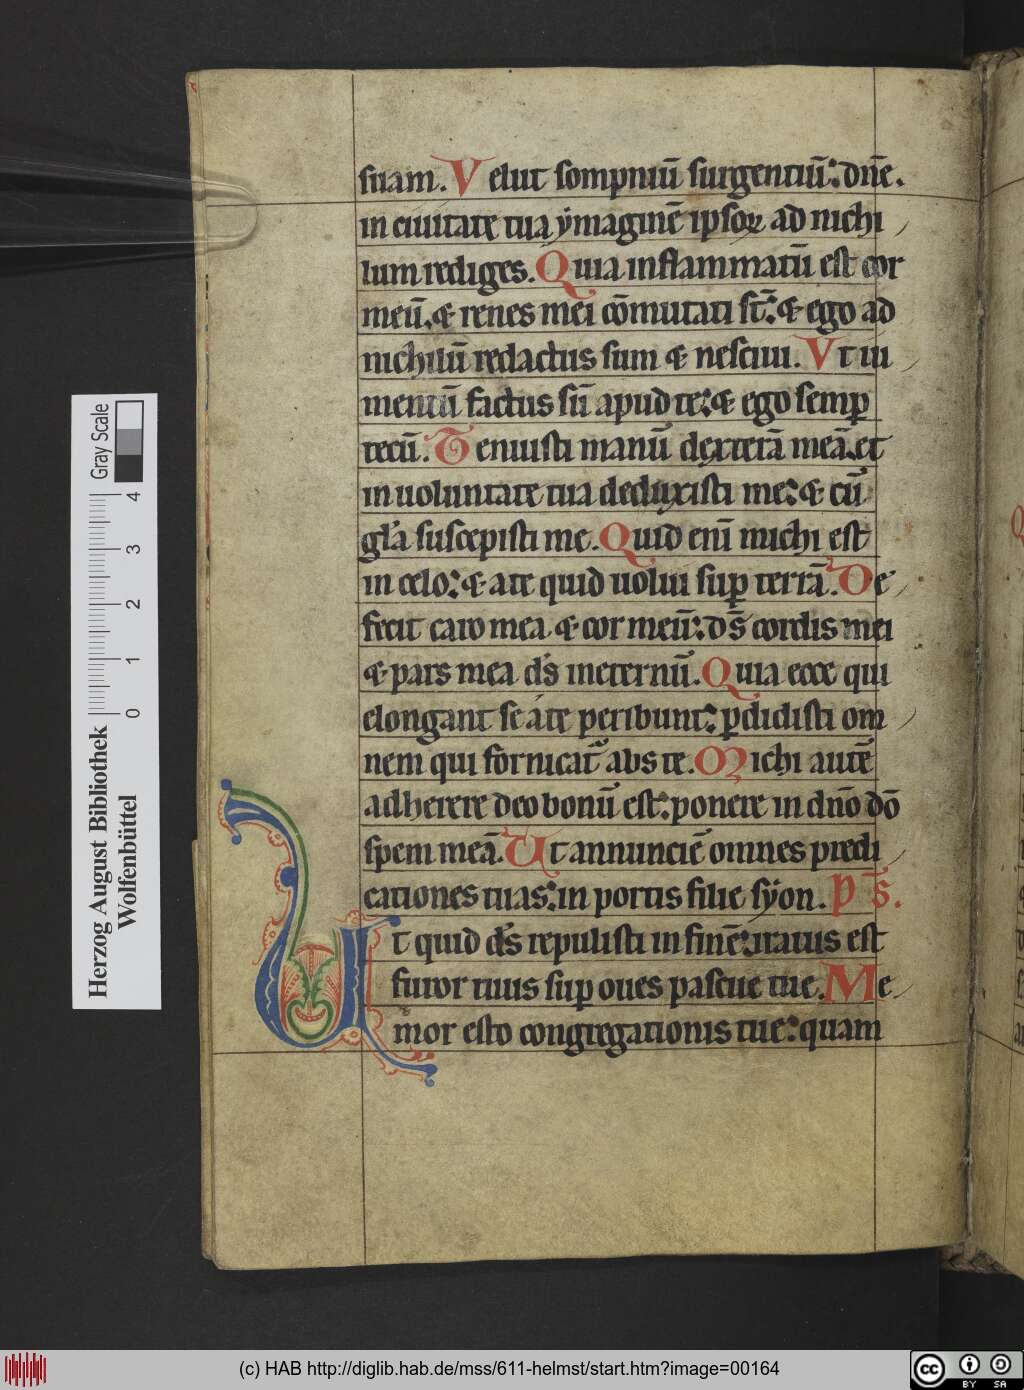 suam. Velut sompniū surgentiū: dn̄e.
in ciuitate tua ẏmaginē ipsoꝝ ad nichi
lum rediges. Quia inflammatū est cor
meū. & renes mei cōmutati st̄: & ego ad
nichilū redactus sum & nesciui. Vt iu
mentū factus sū apud te: & ego semꝑ
tecū. Tenuisti manū dexterā meā. et
in uoluntate tua deduxisti me: & cū
gl̄a suscepisti me. Quid enī michi est
in celo: & a te quid uolui suꝑ terrā. De
fecit caro mea & cor meū: ds̄ cordis mei
& pars mea ds̄ in eternū. Quia ecce qui
elongant se a te peribunt: ꝑdidisti om
nem qui fornicat̄ abs te. Michi autē
adherere deo bonū est: ponere in dn̄o dō
spem meā. Ut annunciē omnes predi
cationes tuas: in portis filie sẏon. ps̄.
Ut quid ds̄ repulisti in finē: iratus est
furor tuus suꝑ oues pascue tue. Me
mor esto congregationis tue: quam
Herzog August Bibliothek
Wolfenbüttel
0 1 2 3 4
Gray Scale
(c) HAB http://diglib.hab.de/mss/611-helmst/start.htm?image=00164
cc BY SA